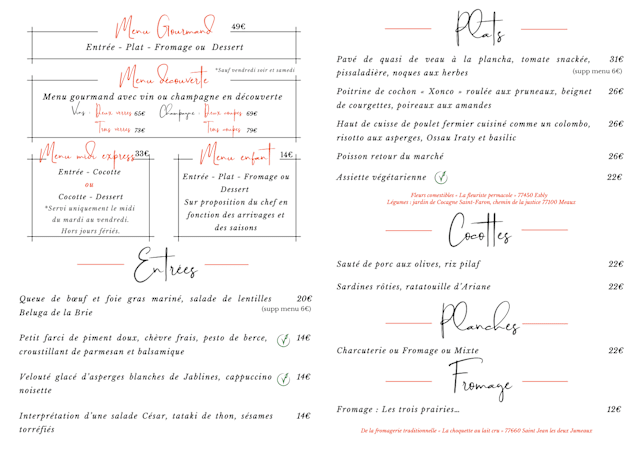 Menu Gourmand 49€
Entrée - Plat - Fromage ou Dessert
*Sauf vendredi soir et samedi
Menu découverte
Menu gourmand avec vin ou champagne en découverte
Vins : Deux verres 65€ Champagne : Deux coupes 69€
Trois verres 73€ Trois coupes 79€
Menu midi express 33€
Entrée - Cocotte
ou
Cocotte - Dessert
*Servi uniquement le midi
du mardi au vendredi.
Hors jours fériés.
Menu enfant 14€
Entrée - Plat - Fromage ou
Dessert
Sur proposition du chef en
fonction des arrivages et
des saisons
Entrées
Queue de bœuf et foie gras mariné, salade de lentilles 20€
Beluga de la Brie (supp menu 6€)
Petit farci de piment doux, chèvre frais, pesto de berce, 14€
croustillant de parmesan et balsamique
Velouté glacé d'asperges blanches de Jablines, cappuccino 14€
noisette
Interprétation d'une salade César, tataki de thon, sésames 14€
torréfiés
Plats
Pavé de quasi de veau à la plancha, tomate snackée, 31€
pissaladière, noques aux herbes (supp menu 6€)
Poitrine de cochon « Xonco » roulée aux pruneaux, beignet 26€
de courgettes, poireaux aux amandes
Haut de cuisse de poulet fermier cuisiné comme un colombo, 26€
risotto aux asperges, Ossau Iraty et basilic
Poisson retour du marché 26€
Assiette végétarienne 22€
Fleurs comestibles « La fleuriste permacole » 77450 Esbly
Légumes : jardin de Cocagne Saint-Faron, chemin de la justice 77100 Meaux
Cocottes
Sauté de porc aux olives, riz pilaf 22€
Sardines rôties, ratatouille d'Ariane 22€
Planches
Charcuterie ou Fromage ou Mixte 22€
Fromage
Fromage : Les trois prairies... 12€
De la fromagerie traditionnelle « La choquette au lait cru » 77660 Saint Jean les deux Jumeaux